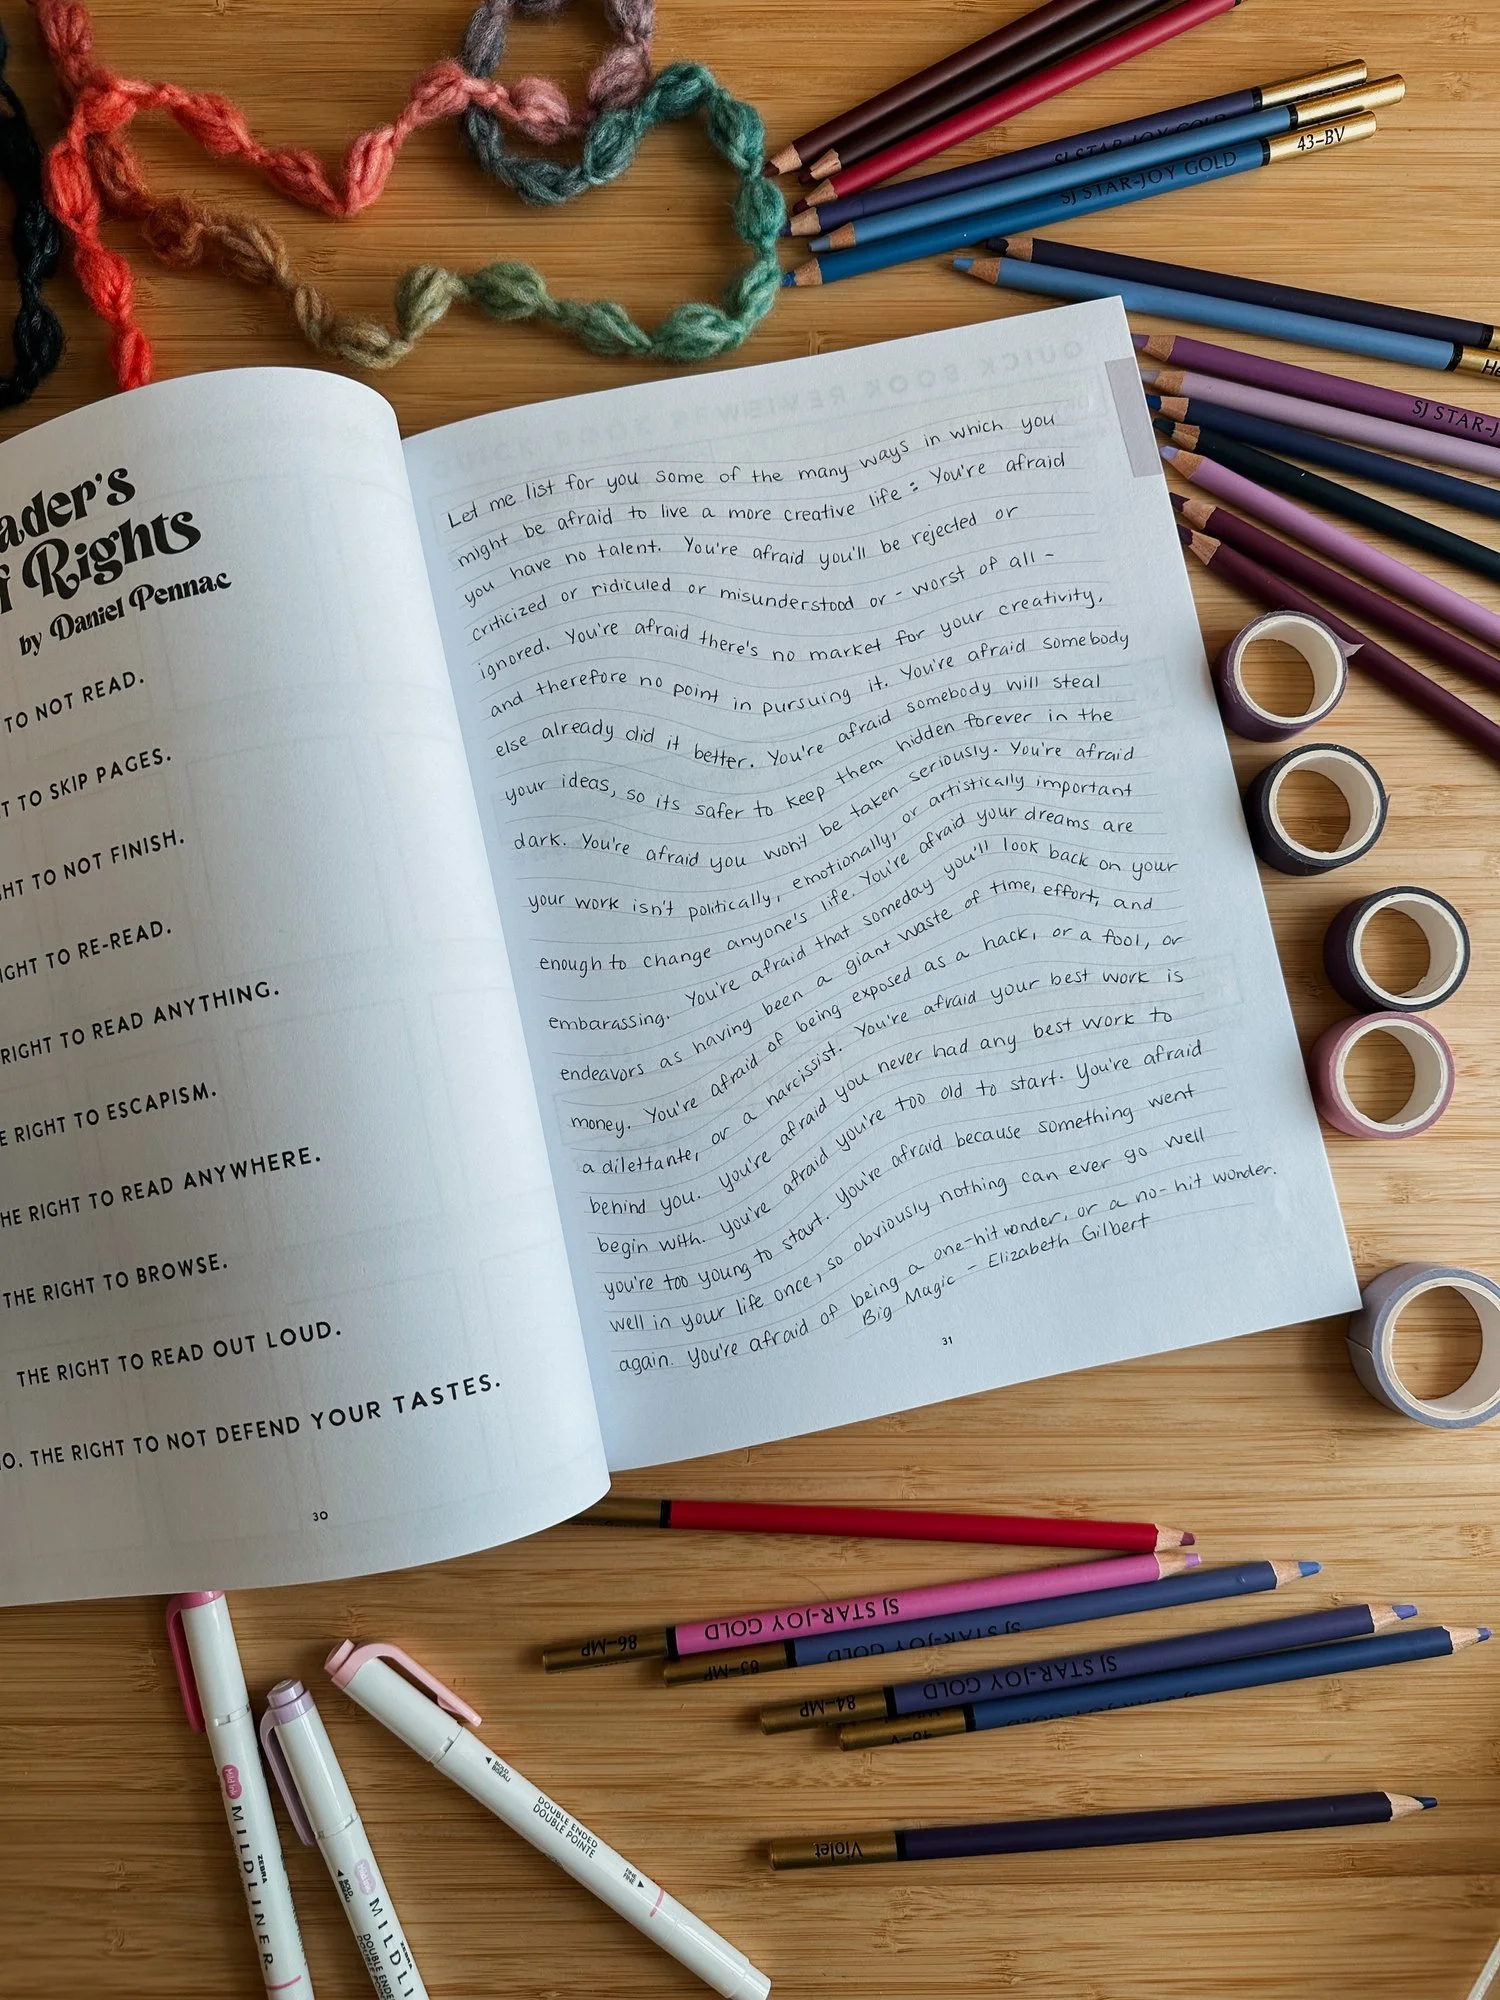 SJ STAR-JOY GOLD
43-BV
SJ STAR-JOY GOLD
He
SJ STAR-J
ader's
f Rights
by Daniel Pennac
TO NOT READ.
T TO SKIP PAGES.
HT TO NOT FINISH.
IGHT TO RE-READ.
RIGHT TO READ ANYTHING.
E RIGHT TO ESCAPISM.
HE RIGHT TO READ ANYWHERE.
THE RIGHT TO BROWSE.
THE RIGHT TO READ OUT LOUD.
0. THE RIGHT TO NOT DEFEND YOUR TASTES.
30
QUICK BOOK REVIEW
Let me list for you some of the many ways in which you
might be afraid to live a more creative life : You're afraid
you have no talent. You're afraid you'll be rejected or
criticized or ridiculed or misunderstood or - worst of all -
ignored. You're afraid there's no market for your creativity,
and therefore no point in pursuing it. You're afraid somebody
else already did it better. You're afraid somebody will steal
your ideas, so its safer to keep them hidden forever in the
dark. You're afraid you won't be taken seriously. You're afraid
your work isn't politically, emotionally, or artistically important
enough to change anyone's life. You're afraid your dreams are
embarassing. You're afraid that someday you'll look back on your
endeavors as having been a giant waste of time, effort, and
money. You're afraid of being exposed as a hack, or a fool, or
a dilettante, or a narcissist. You're afraid your best work is
behind you. You're afraid you never had any best work to
begin with. You're afraid you're too old to start. You're afraid
you're too young to start. You're afraid because something went
well in your life once, so obviously nothing can ever go well
again. You're afraid of being a one-hit wonder, or a no-hit wonder.
Big Magic - Elizabeth Gilbert
31
86-MP SJ STAR-JOY GOLD
83-MP SJ STAR-JOY GOLD
84-MP SJ STAR-JOY GOLD
Violet
Mild ink
MILDLINER
ZEBRA
BOLD
MILDLI
DOUBLE ENDE
BOLD
BISEAU
DOUBLE ENDED
DOUBLE POINTE
FINE
FINE